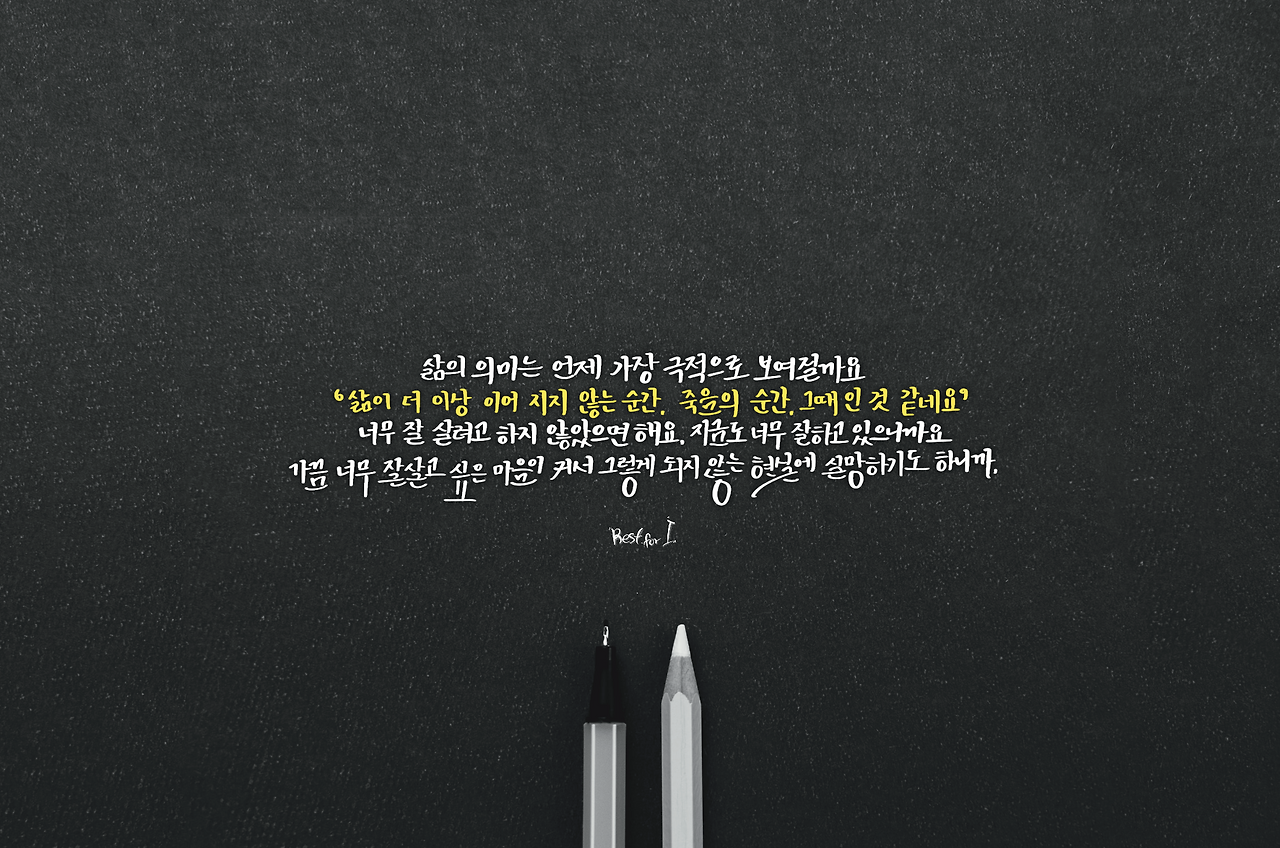 삶의 의미는 언제 가장 극적으로 보여질까요
‘삶이 더 이상 이어 지지 않는 순간, 죽음의 순간, 그때 인 것 같네요’
너무 잘 살려고 하지 않았으면 해요. 지금도 너무 잘하고 있으니까요
가끔 너무 잘살고 싶은 마음이 커서 그렇게 되지 않는 현실에 실망하기도 하니까.
Best for I.